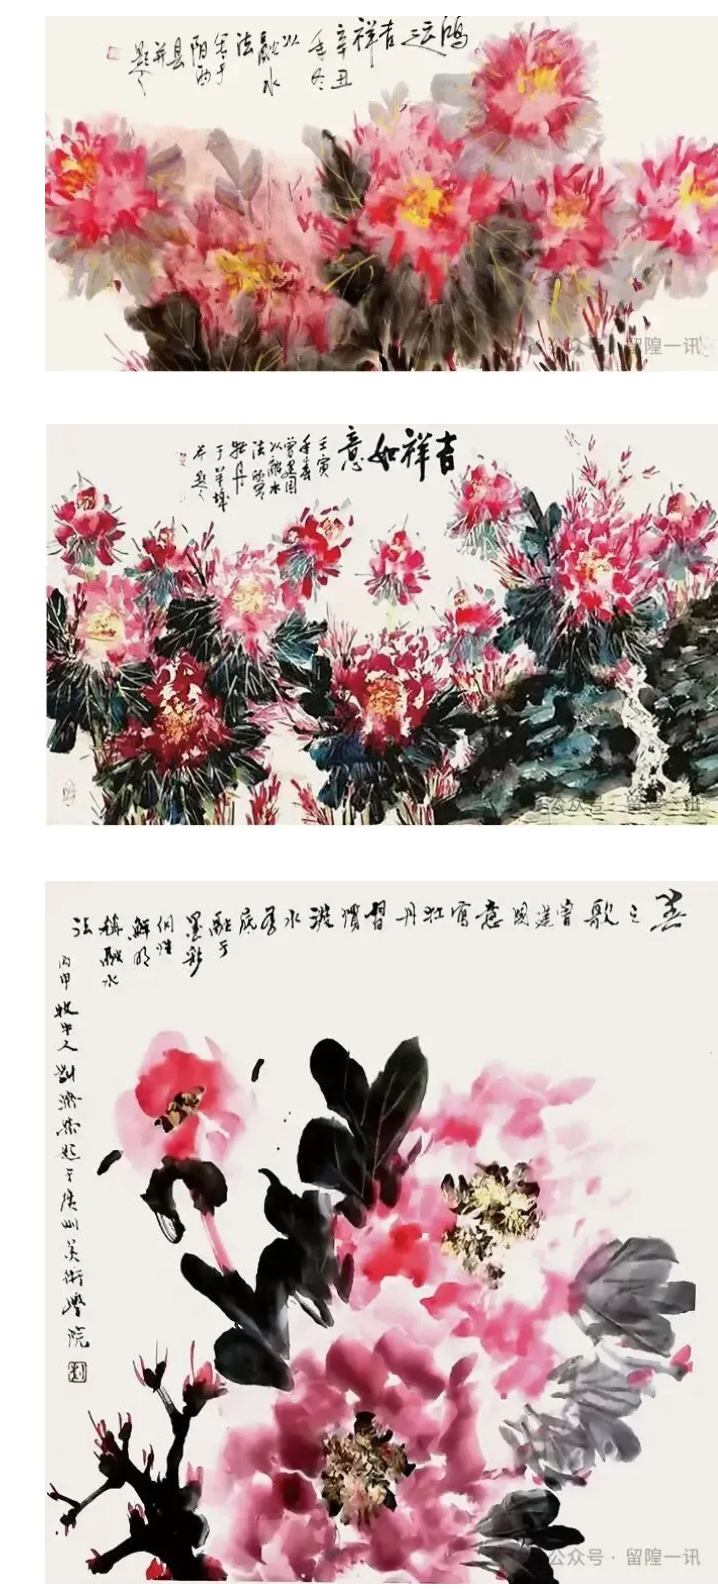 鸿运祥吉
辛丑
年冬
以
融水
法
写于
阳西
县
并
题
公众号 · 留隍一讯
吉祥如意
壬寅
年春
曾建国
以融水
法写
牡丹
于羊城
并题
公众号 · 留隍一讯
春之歌曾建国意写牡丹习惯泼水为底
融于
墨彩
个性
鲜明
称融水
法
丙申牧牛人刘济荣题于广州美术学院
公众号 · 留隍一讯